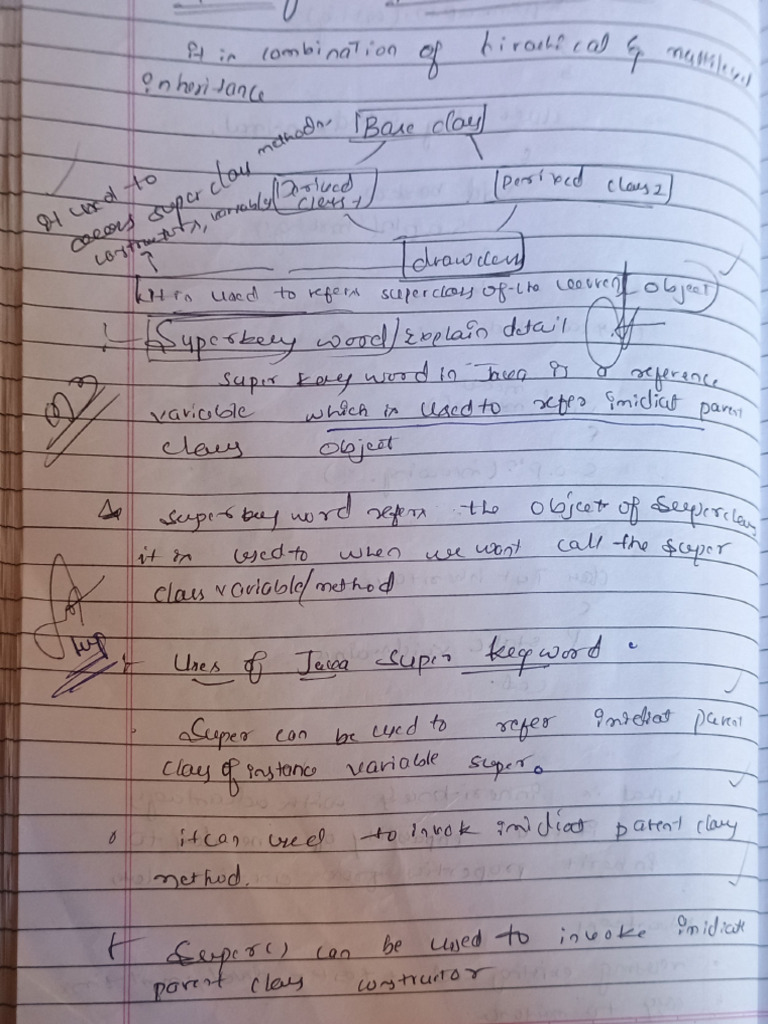 It is combination of hirachical & multilevel
inheritance
Base class
Derived class 1
Derived class 2
drawclass
It used to access superclass methods
constructors, variables
It is used to refers superclass of the current object
:- Superkey word / Explain detail
super key word in Java is a reference
variable which is used to refer imidiat parent
class object
super key word refers the object of superclass
it is used to when we want call the super
class variable/method
imp
Uses of Java super keyword .
Super can be used to refer imidiat parent
class of instance variable super.
it can used to invok imidiat parent class
method.
Super() can be used to invoke imidiat
parent class constructor